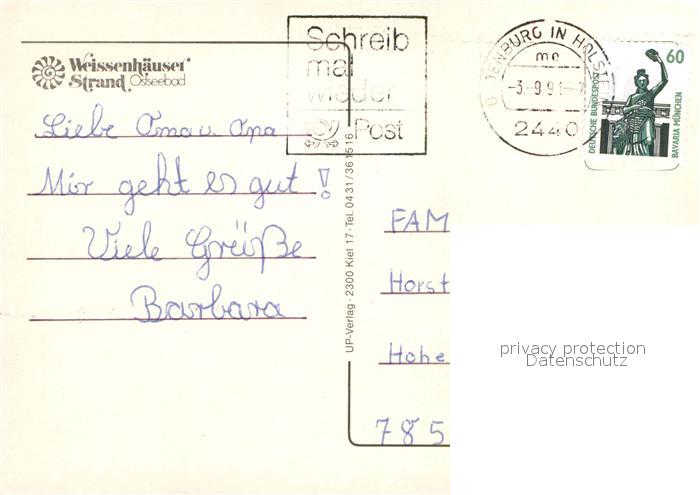 Weissenhäuser
Strand Ostseebad
Schreib
mal
wieder
Post
DENBURG IN HOLST
mc
-3.-9.91-7
2440
60
DEUTSCHE BUNDESPOST
BAVARIA MÜNCHEN
Liebe Oma u. Opa
Mir geht es gut!
Viele Grüße
Barbara
UP-Verlag · 2300 Kiel 17 · Tel. 04 31/36 15 16
FAM
Horst
Hohe
785
privacy protection
Datenschutz